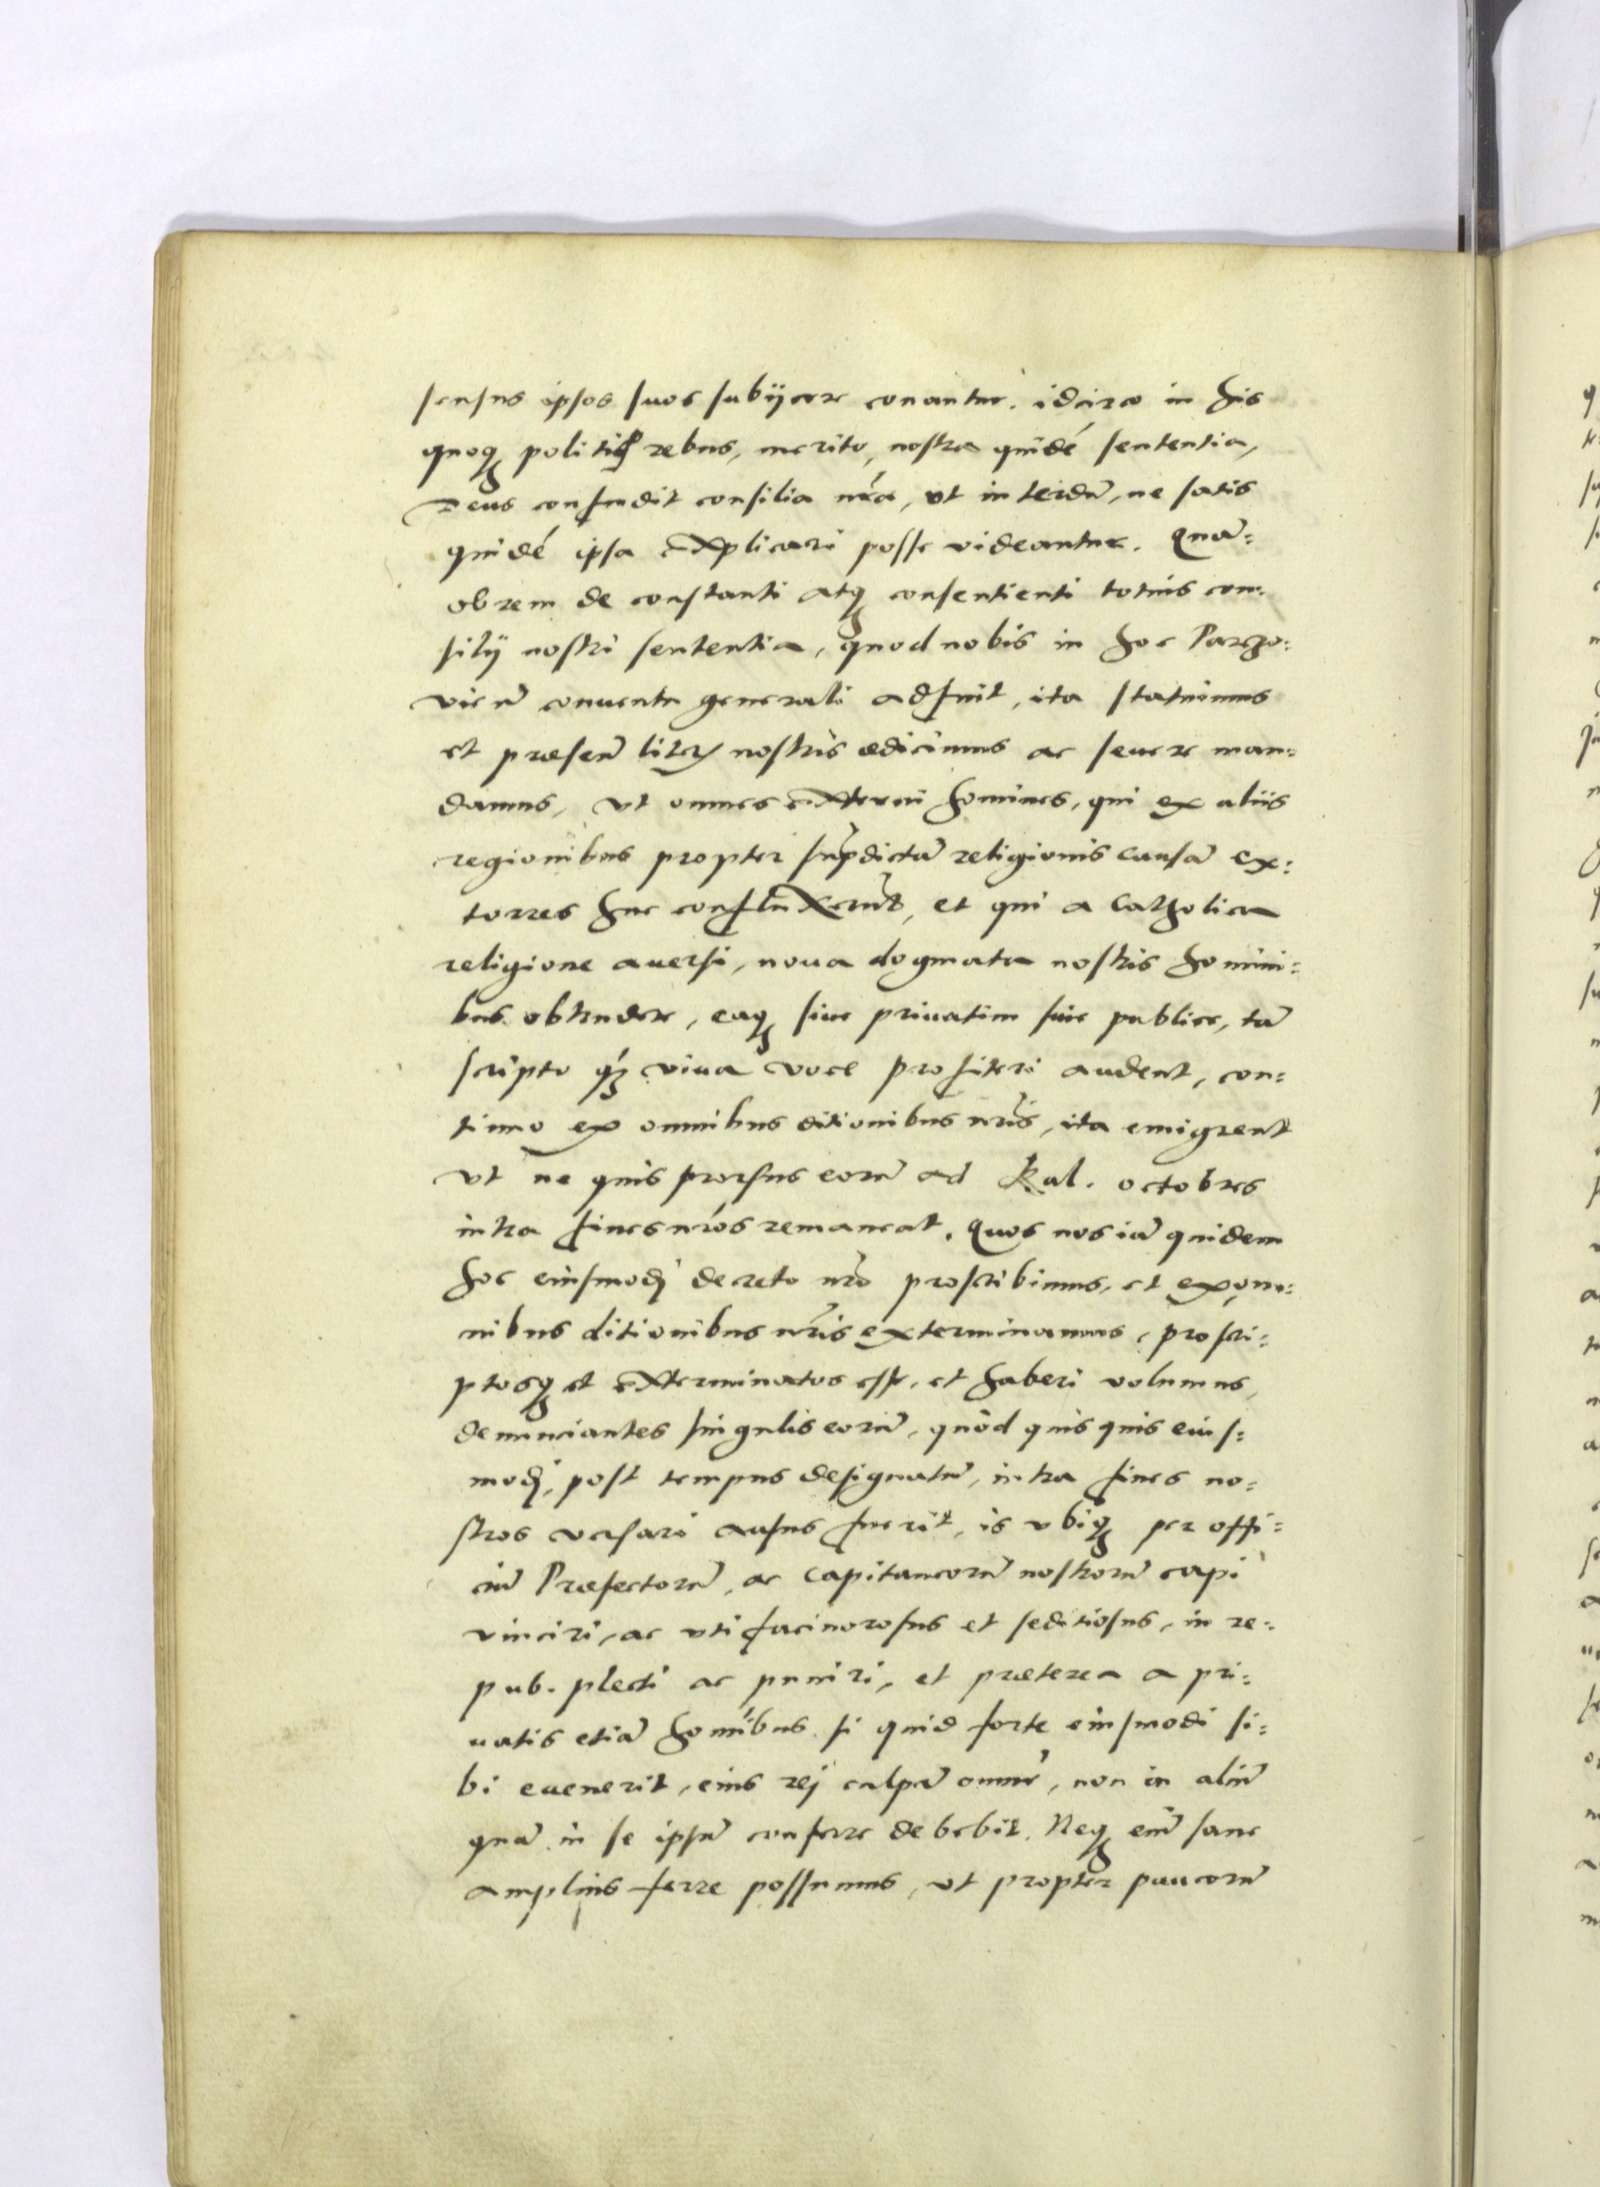 sensus ipsos suos subijcere conantur. idcirco in his
quoq; politicis rebus, merito, nostra quidē sententia,
Deus confudit consilia nrā, vt interdū, ne satis
quidē ipsa explicari posse videantur. Quā=
obrem de constanti atq; consentienti totius con=
silij nostri sententia, quod nobis in hoc Parczo=
vień conuentu generali adfuit, ita statuimus
et præsen̄ liter; nostris ædicimus ac seuere man=
damus, vt omnes externi homines, qui ex aliis
regionibus propter sup̄dictā religionis causā ex=
torres huc confluxerūt, et qui a Catholica
religione auersi, noua dogmata nostris homini=
bus obtrudere, eaq; siue priuatim siue publice, tā
scripto q̄ viua voce profiteri audent, con=
tinuo ex omnibus ditionibus nrīs, ita emigrent
vt ne quis prorsus eorū ad Kal. octobres
intra fines nrōs remaneat. Quos nos iā quidem
hoc eiusmodi decreto nrō proscribimus, et ex om=
nibus ditionibus nrīs exterminamus, proscri=
ptosq; et exterminatos esse, et haberi volumus,
denunciantes singulis eorū, quòd quis quis eius=
modi, post tempus designatū, intra fines no=
stros versari ausus fuerit, is vbiq; per offi=
ciū Præfectorū, ac Capitaneorū nostrorū capi
vinciri, ac vti facinorosus et seditiosus, in re=
pub. plecti ac puniri, et præterea a pri=
uatis etiā homībus si quid forte eiusmodi si=
bi euenerit, eius rej culpā omnē, non in aliū
quā in se ipsū conferre debebit. Neq; eīm sane
amplius ferre possumus, vt propter paucorū